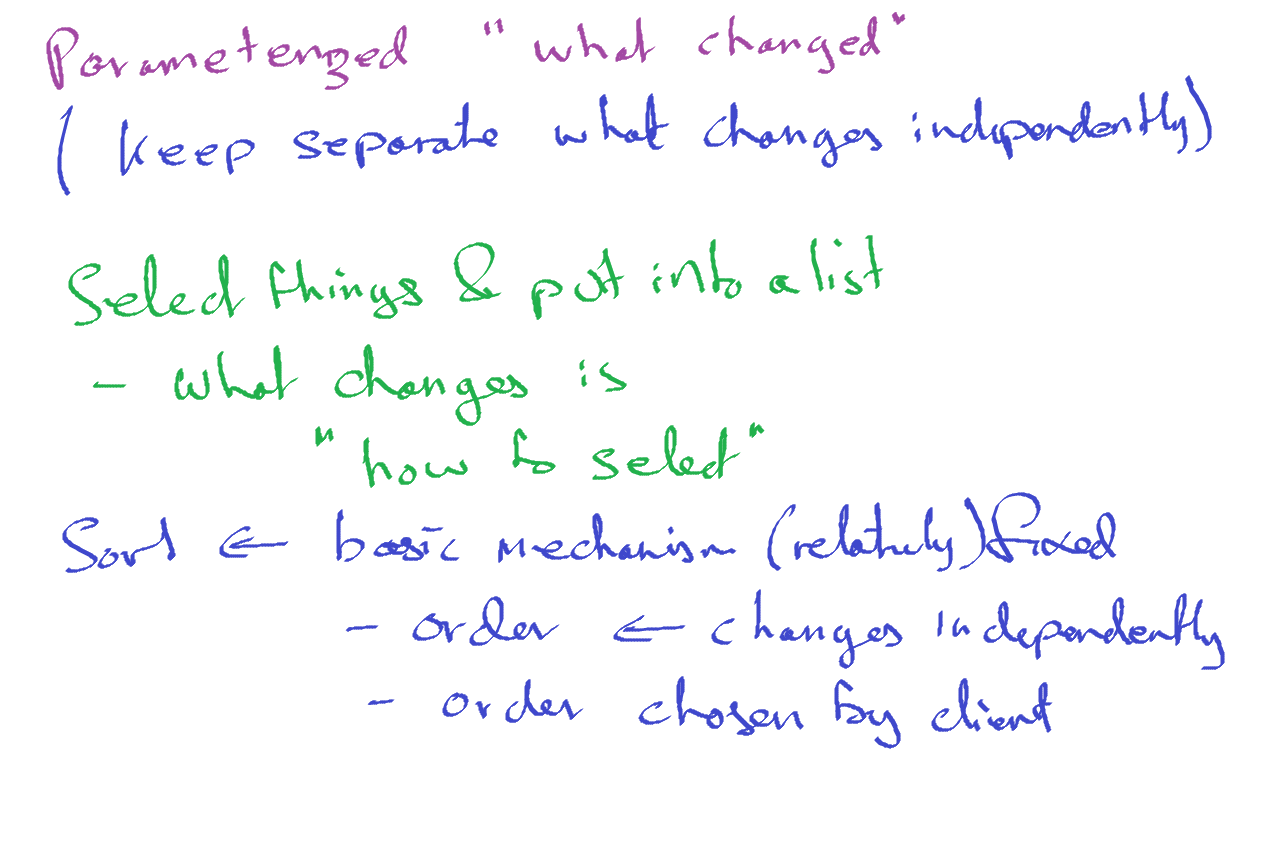 Parameterized "what changed"
(keep separate what changes independently)
Select things & put into a list
- what changes is
"how to select"
Sort ← basic mechanism (relatively) fixed
- order ← changes independently
- order chosen by client